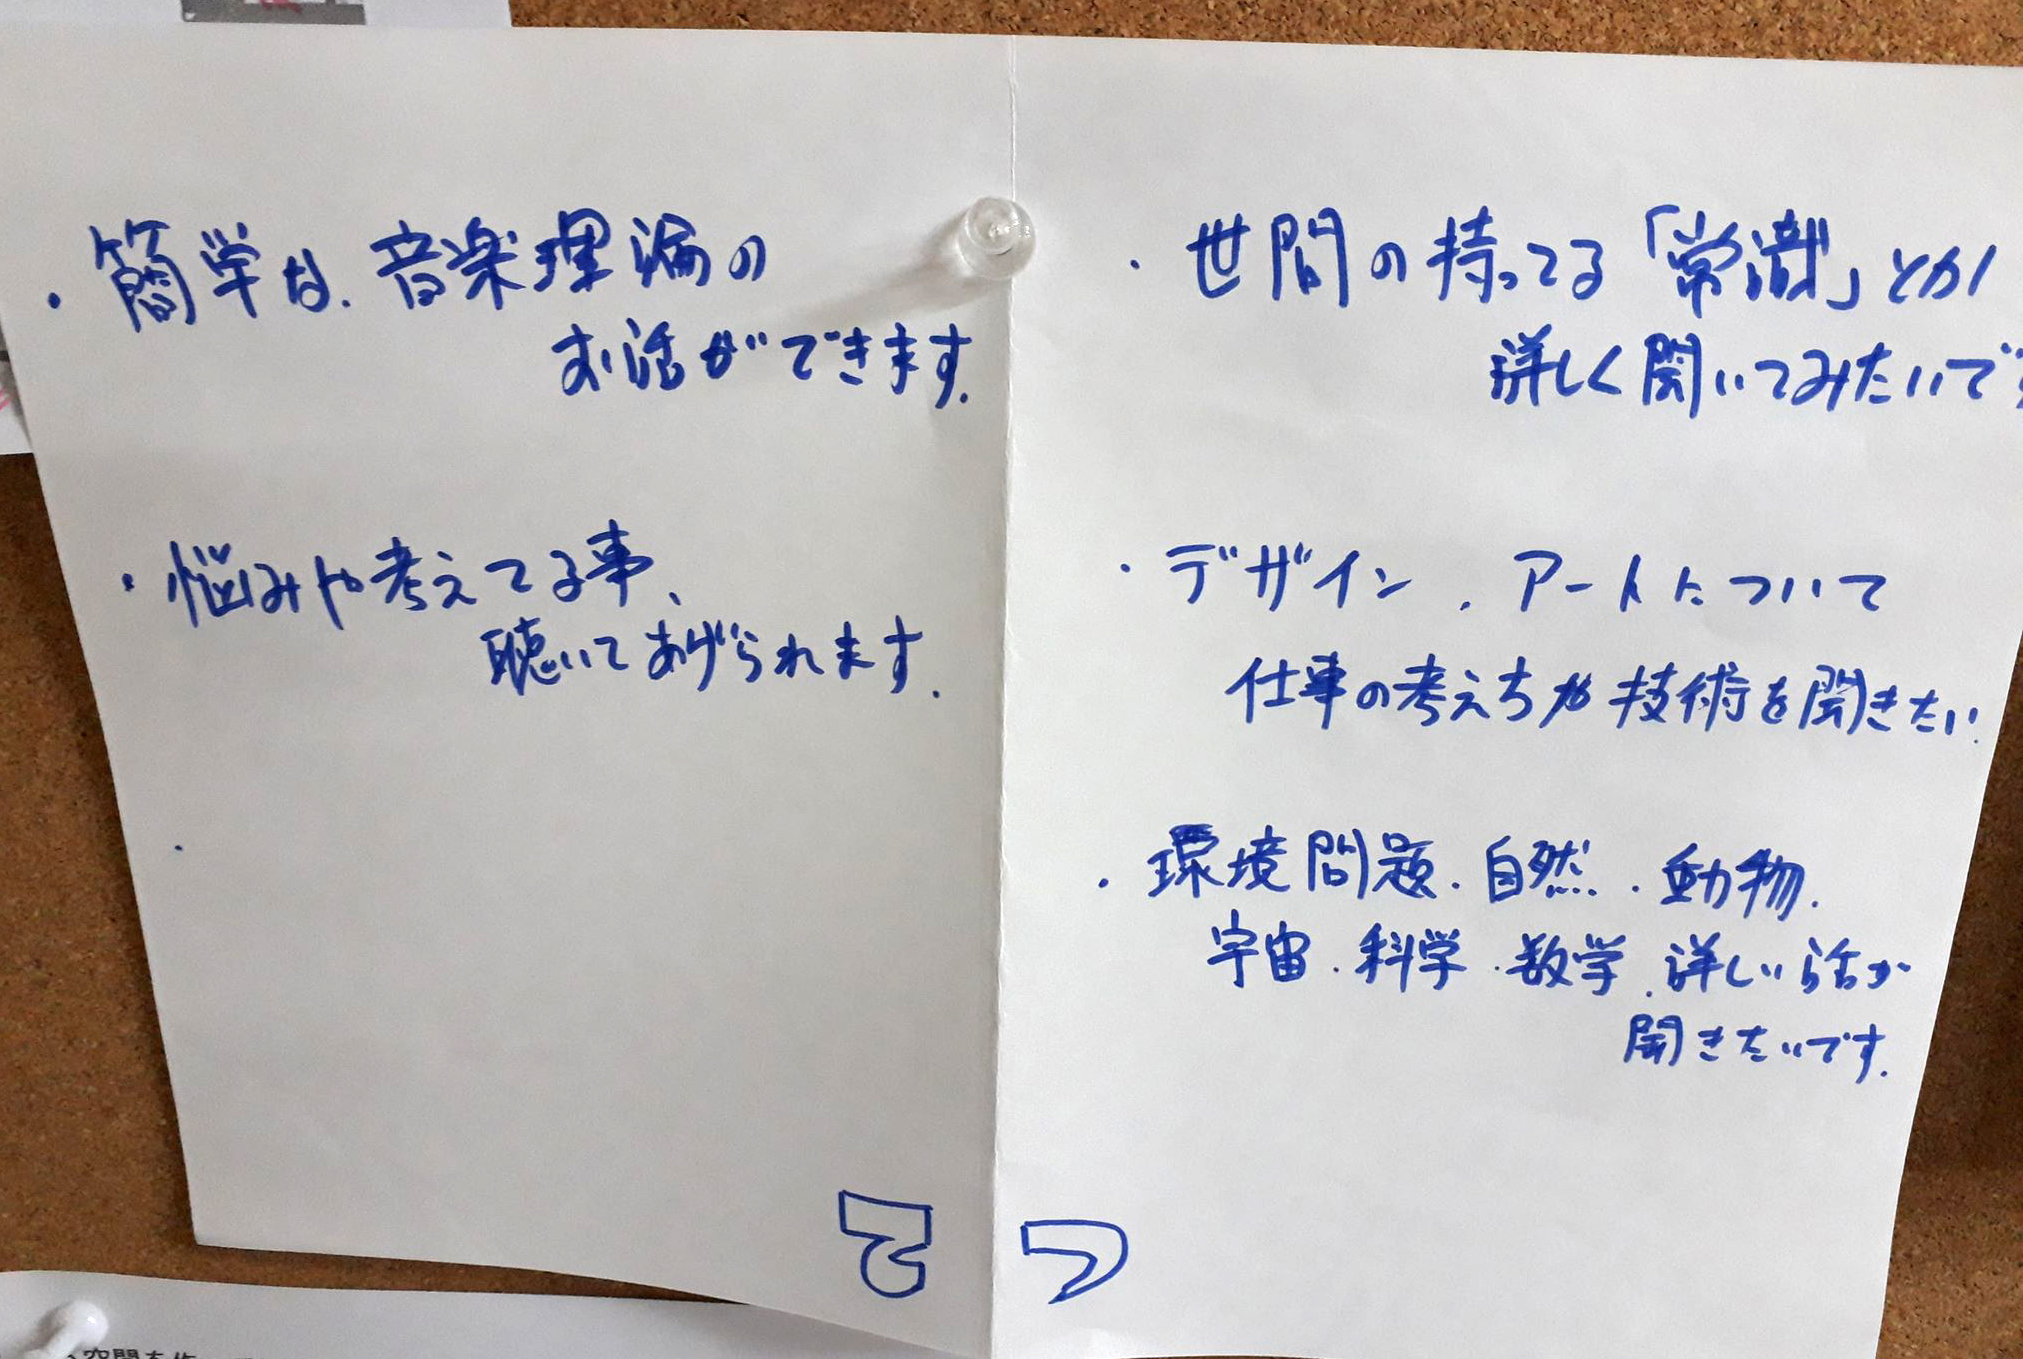 ・簡単な、音楽理論の
お話ができます。
・悩みや考えてる事、
聴いてあげられます。
・
て
・世間の持ってる「常識」とか
詳しく聞いてみたいです
・デザイン、アートについて
仕事の考え方や技術を聞きたい
・環境問題・自然・動物・
宇宙・科学・数学、詳しい話が
聞きたいです。
つ